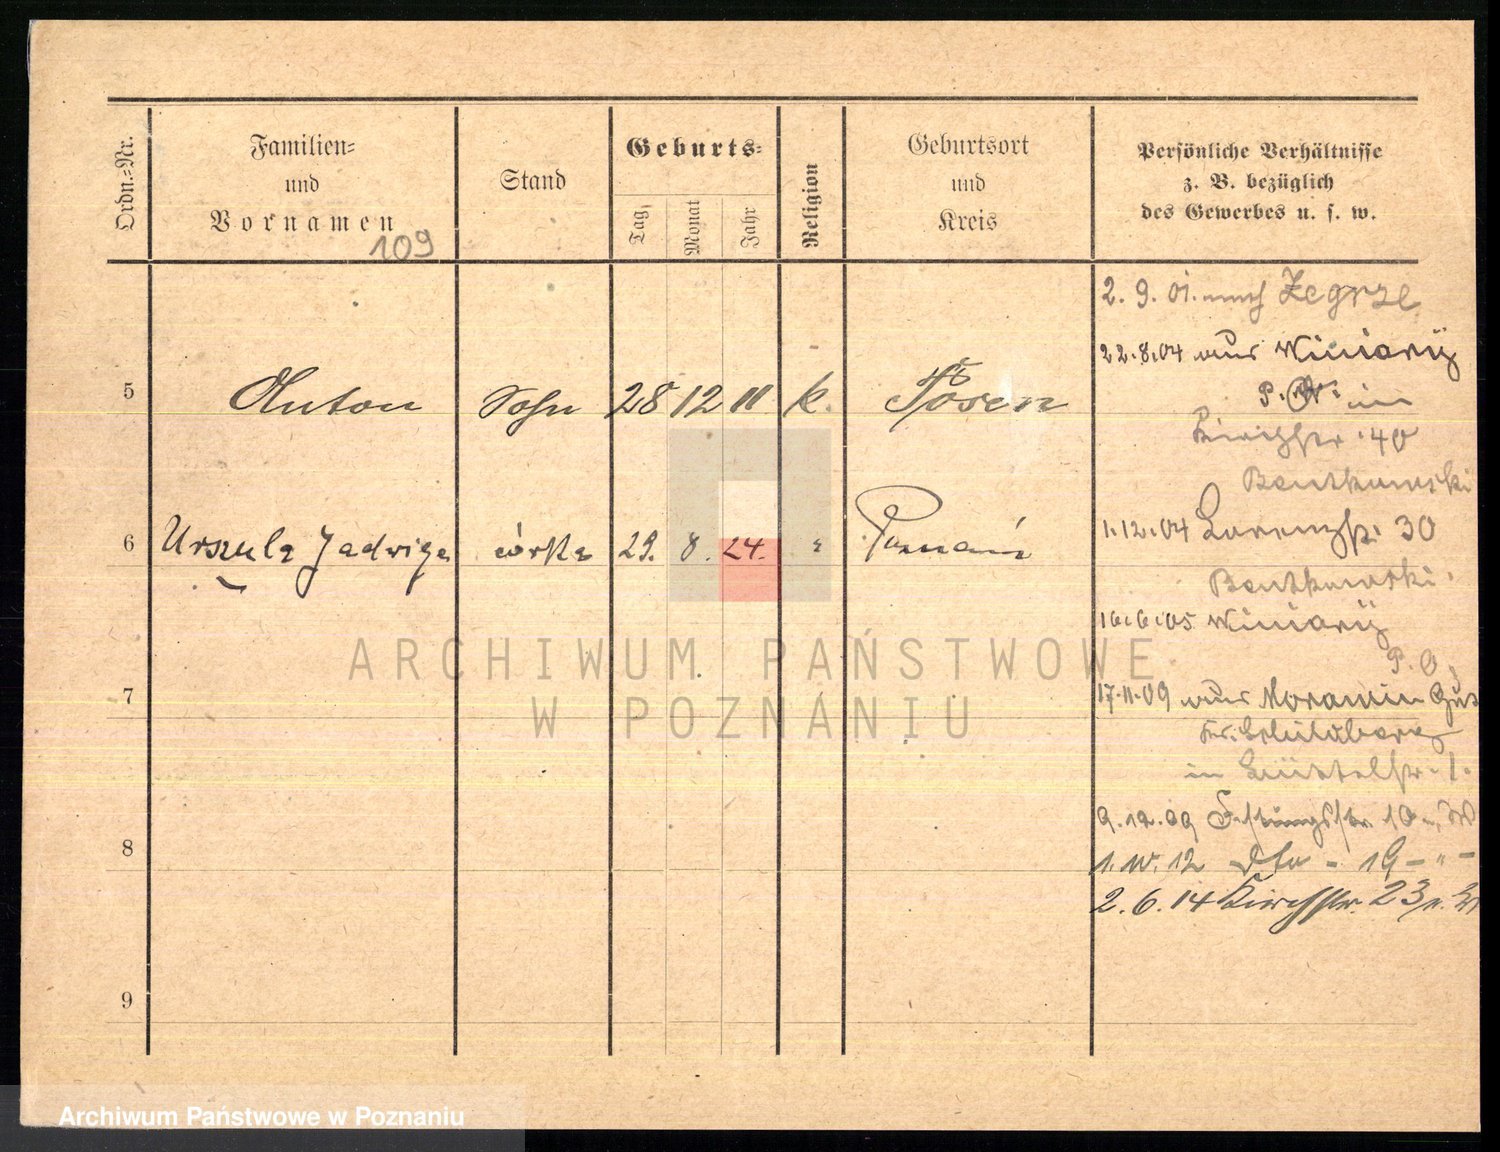 Ordn.-Nr.
Familien-
und
Vornamen
109
Stand
Geburts-
Tag
Monat
Jahr
Religion
Geburtsort
und
Kreis
Persönliche Verhältnisse
z. B. bezüglich
des Gewerbes u. s. w.
2. 9. 01. nach Zegrze
22.8.04 aus Winiary
5 Anton Sohn 28 12 11 k. Posen
Kirchstr. 40
Bentkowski
6 Urszula Jadwiga córka 29. 8. 24. " Poznań
1.12.04 Lorenzstr. 30
Bentkowski.
16.6.05 Winiary
P. O.
ARCHIWUM PAŃSTWOWE
W POZNANIU
7
17.11.09 aus
in
8
9.12.09 Festungsstr. 10
1. 12 dto - 19 - " -
2. 6. 14 Kirchstr. 23
9
Archiwum Państwowe w Poznaniu